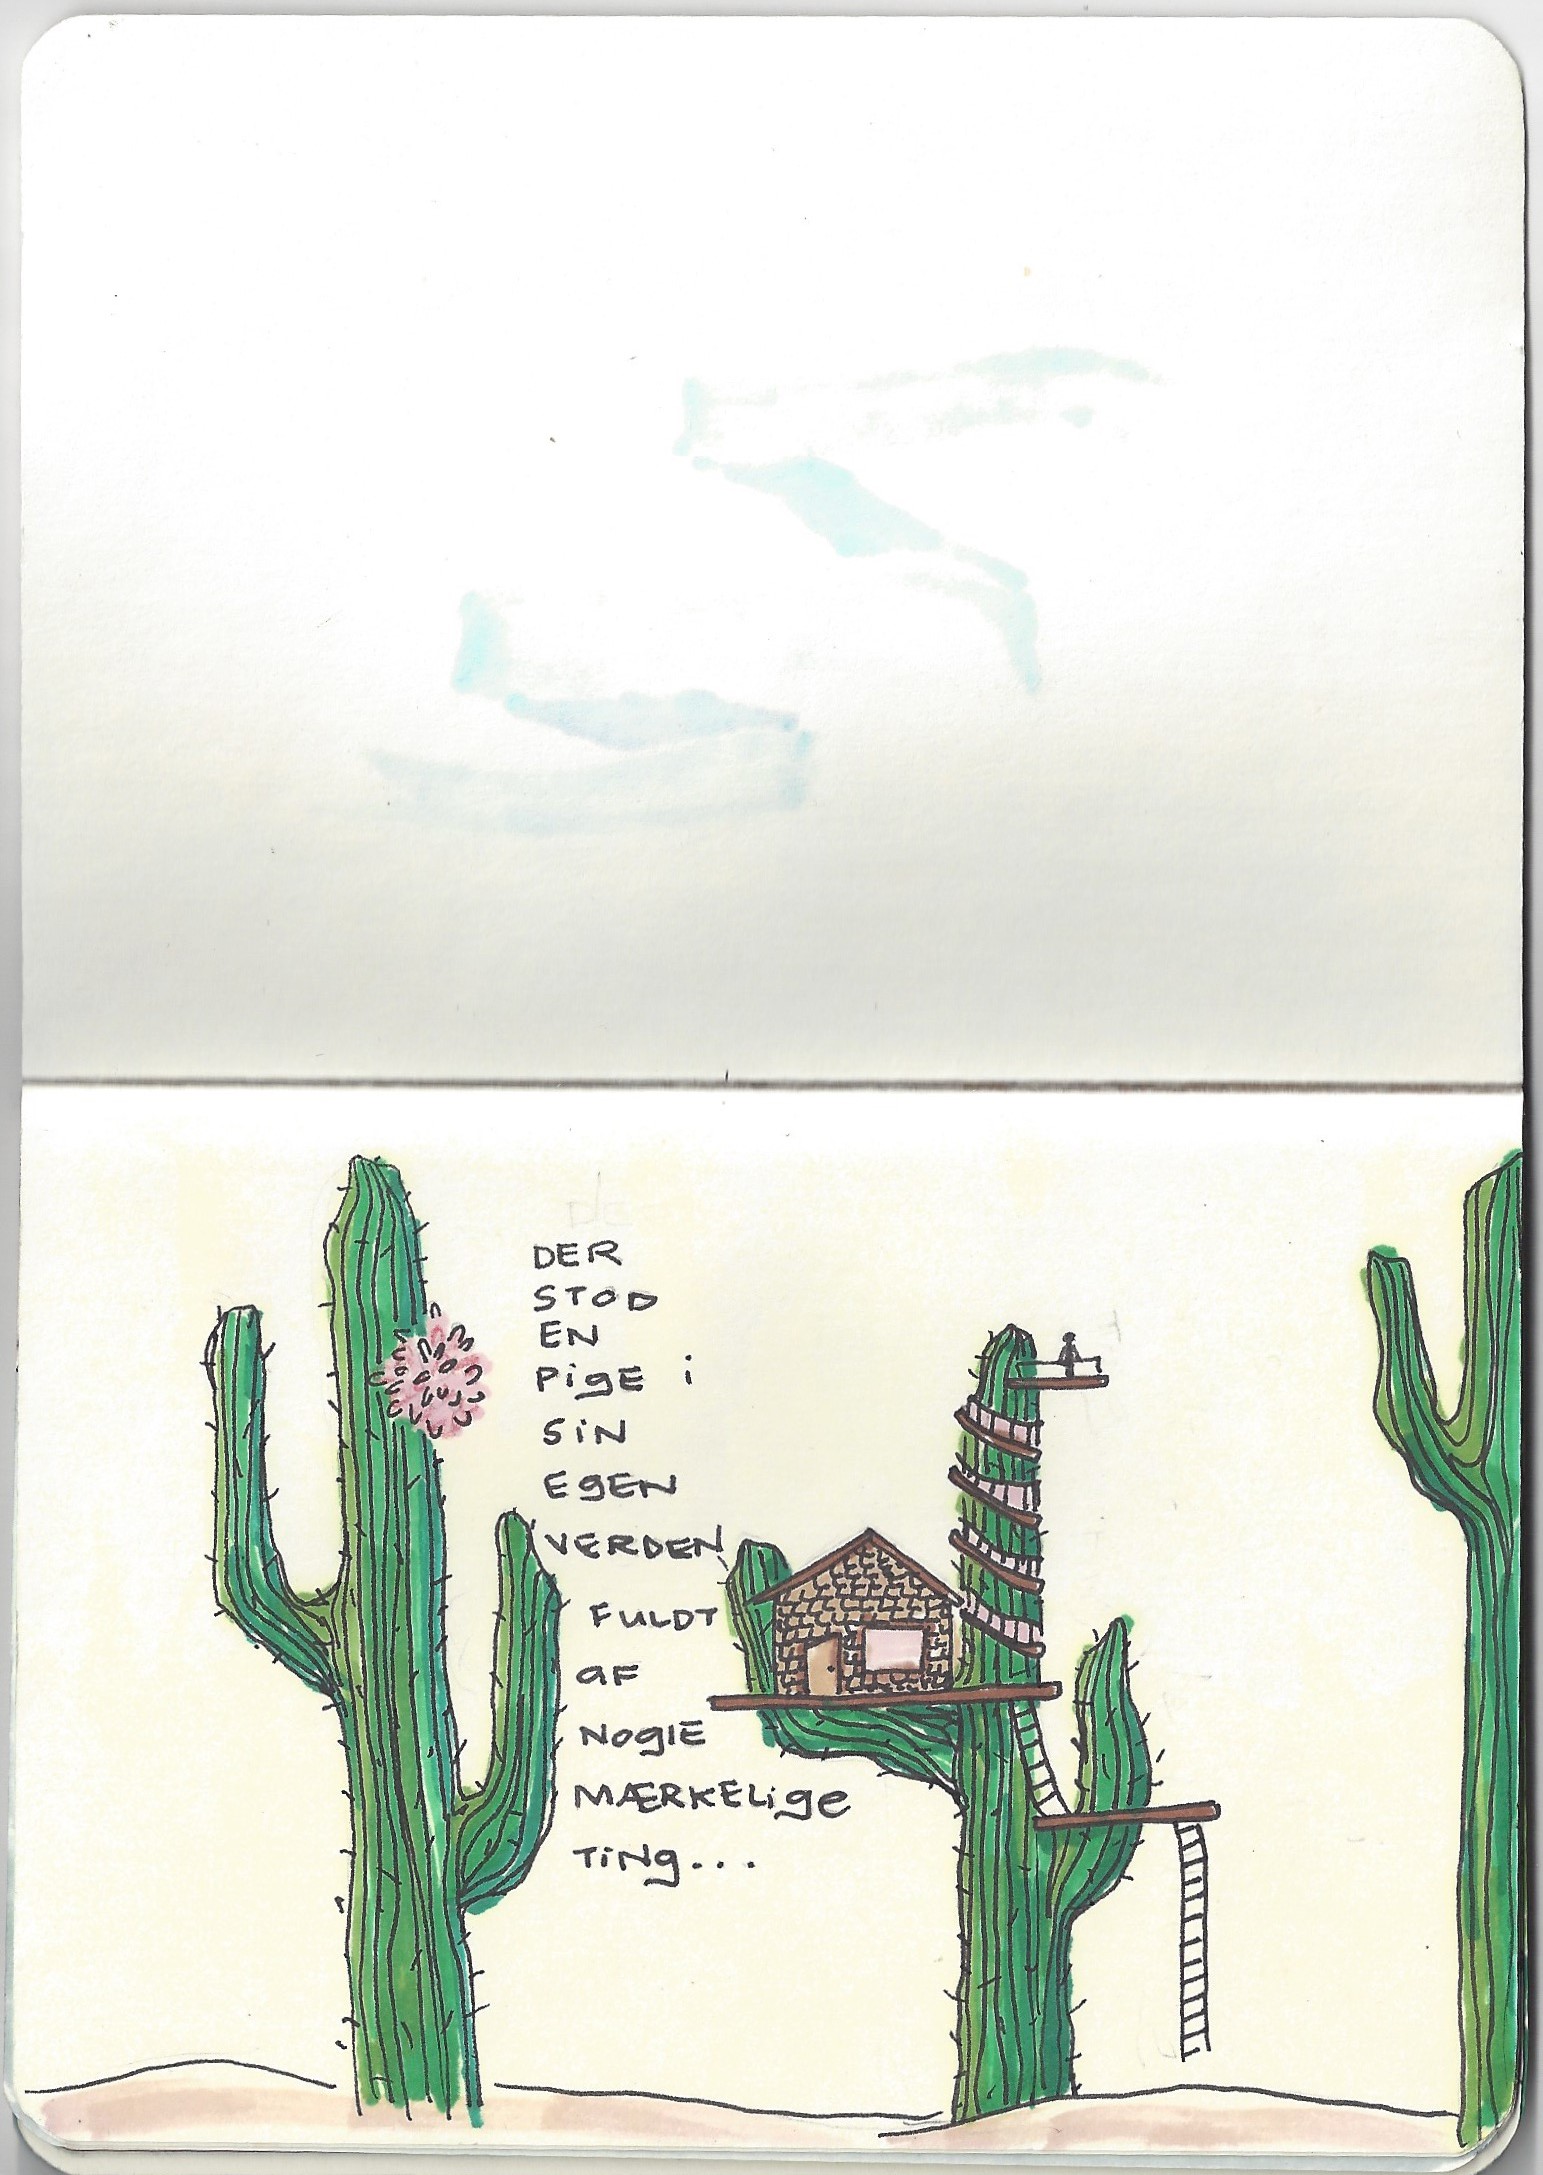 DER
STOD
EN
PigE i
SiN
EgEN
VERDEN
FULDT
aF
NOglE
MÆRKELige
TiNg...